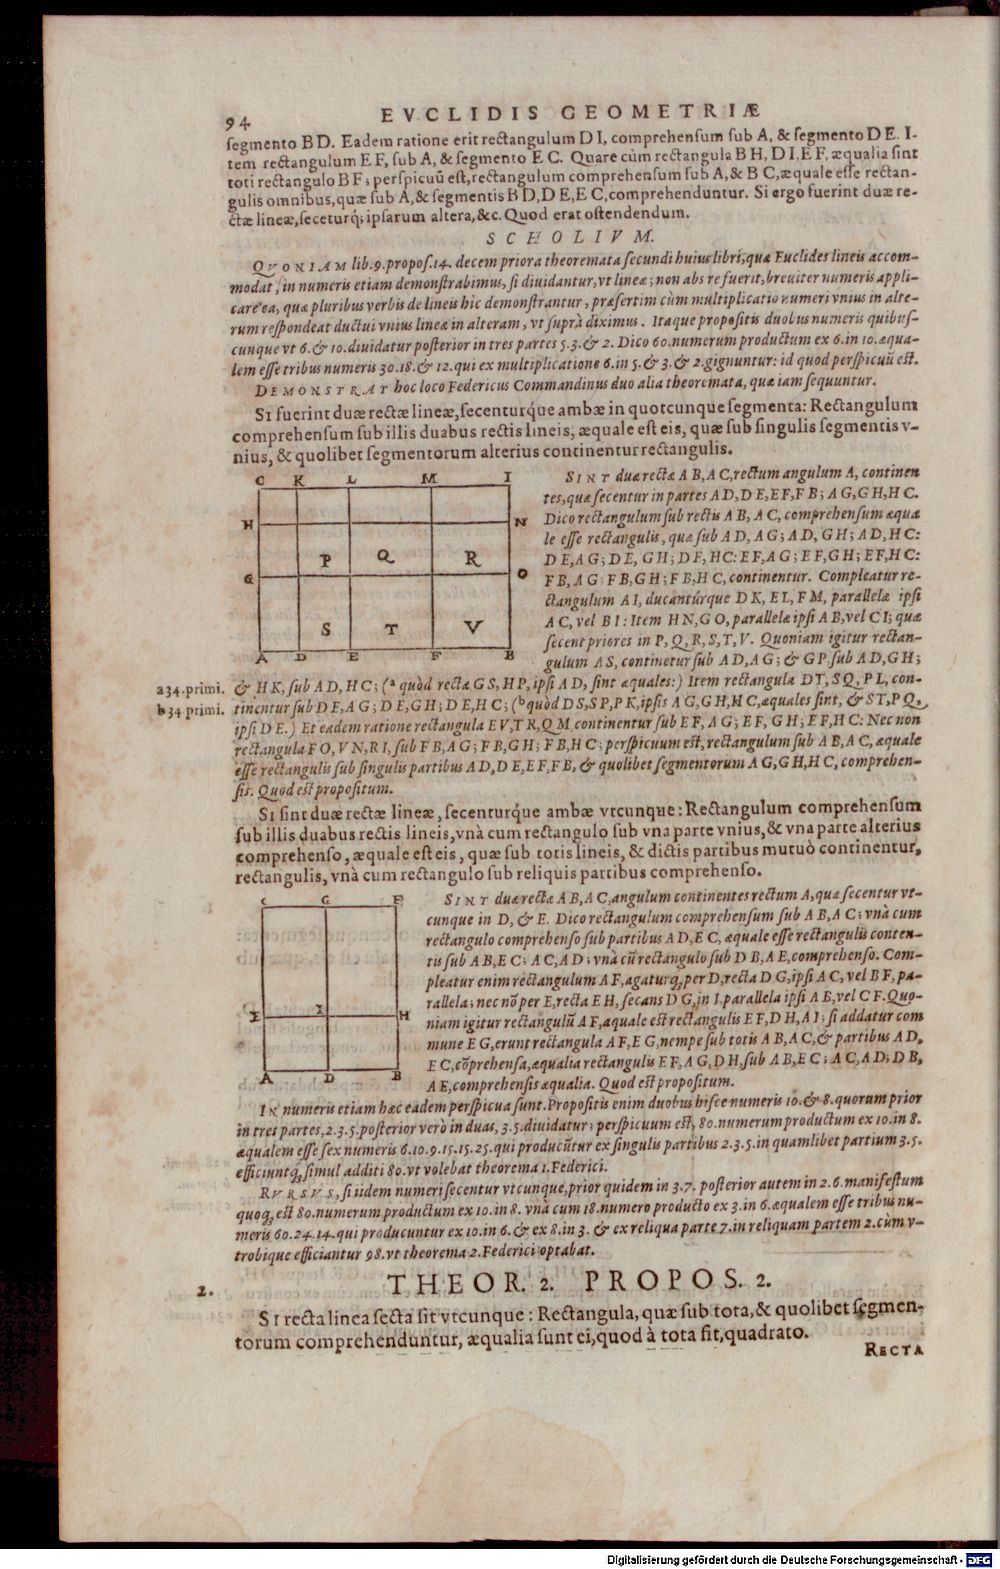 94
EVCLIDIS GEOMETRIÆ
segmento BD. Eadem ratione erit rectangulum DI, comprehensum sub A, & segmento DE. I-
tem rectangulum EF, sub A, & segmento EC. Quare cùm rectangula BH, DI, EF, æqualia sint
toti rectangulo BF; perspicuũ est, rectangulum comprehensum sub A, & BC, æquale esse rectan-
gulis omnibus, quæ sub A, & segmentis BD, DE, EC, comprehenduntur. Si ergo fuerint duæ re-
ctæ lineæ, seceturq́; ipsarum altera, &c. Quod erat ostendendum.
SCHOLIVM.
QVONIAM lib. 9. propos. 14. decem priora theoremata secundi huius libri, quæ Euclides lineis accom-
modat, in numeris etiam demonstrabimus, si diuidantur, vt lineæ; non abs re fuerit, breuiter numeris appli-
care ea, quæ pluribus verbis de lineis hic demonstrantur, præsertim cùm multiplicatio numeri vnius in alte-
rum respondeat ductui vnius lineæ in alteram, vt suprà diximus. Itaque propositis duobus numeris quibus-
cunque vt 6. & 10. diuidatur posterior in tres partes 5. 3. & 2. Dico 60. numerum productum ex 6. in 10. æqua-
lem esse tribus numeris 30. 18. & 12. qui ex multiplicatione 6. in 5. & 3. & 2. gignuntur: id quod perspicuũ est.
DEMONSTRAT hoc loco Federicus Commandinus duo alia theoremata, quæ iam sequuntur.
SI fuerint duæ rectæ lineæ, secenturq́ue ambæ in quotcunque segmenta: Rectangulum
comprehensum sub illis duabus rectis lineis, æquale est eis, quæ sub singulis segmentis v-
nius, & quolibet segmentorum alterius continentur rectangulis.
C K L M I
H N
P Q R
G O
S T V
A D E F B
SINT duæ rectæ AB, AC, rectum angulum A, continen
tes, quæ secentur in partes AD, DE, EF, FB; AG, GH, HC.
Dico rectangulum sub rectis AB, AC, comprehensum æqua
le esse rectangulis, quæ sub AD, AG; AD, GH; AD, HC:
DE, AG; DE, GH; DE, HC: EF, AG; EF, GH; EF, HC:
FB, AG: FB, GH; FB, HC, continentur. Compleatur re-
ctangulum AI, ducantúrque DK, EL, FM, parallelæ ipsi
AC, vel BI: Item HN, GO, parallelæ ipsi AB, vel CI; quæ
secent priores in P, Q, R, S, T, V. Quoniam igitur rectan-
gulum AS, continetur sub AD, AG; & GP, sub AD, GH;
a 34. primi.
& HK, sub AD, HC; (a quòd rectæ GS, HP, ipsi AD, sint æquales:) Item rectangula DT, SQ, PL, con-
b 34 primi.
tinentur sub DE, AG; DE, GH; DE, HC; (b quòd DS, SP, PK, ipsis AG, GH, HC, æquales sint, & ST, PQ,
ipsi DE.) Et eadem ratione rectangula EV, TR, QM continentur sub EF, AG; EF, GH; EF, HC: Nec non
rectangula FO, VN, RI, sub FB, AG; FB, GH; FB, HC; perspicuum est, rectangulum sub AB, AC, æquale
esse rectangulis sub singulis partibus AD, DE, EF, FB, & quolibet segmentorum AG, GH, HC, comprehen-
sis. Quod est propositum.
SI sint duæ rectæ lineæ, secenturq́ue ambæ vtcunque: Rectangulum comprehensum
sub illis duabus rectis lineis, vnà cum rectangulo sub vna parte vnius, & vna parte alterius
comprehenso, æquale est eis, quæ sub totis lineis, & dictis partibus mutuò continentur,
rectangulis, vnà cum rectangulo sub reliquis partibus comprehenso.
C G F
E I H
A D B
SINT duæ rectæ AB, AC, angulum continentes rectum A, quæ secentur vt-
cunque in D, & E. Dico rectangulum comprehensum sub AB, AC; vnà cum
rectangulo comprehenso sub partibus AD, EC, æquale esse rectangulis conten-
tis sub AB, EC; AC, AD; vnà cũ rectangulo sub DB, AE, comprehenso. Com-
pleatur enim rectangulum AF, agaturq́; per D, recta DG, ipsi AC, vel BF, pa-
rallela; nec nõ per E, recta EH, secans DG, in I, parallela ipsi AB, vel CF. Quo-
niam igitur rectangulũ AF, æquale est rectangulis EF, DH, AI; si addatur com
mune EG, erunt rectangula AF, EG, nempe sub totis AB, AC, & partibus AD,
EC, cõprehensa, æqualia rectangulis EF, AG, DH, sub AB, EC; AC, AD; DB,
AE, comprehensis æqualia. Quod est propositum.
IN numeris etiam hæc eadem perspicua sunt. Propositis enim duobus hisce numeris 10. & 8. quorum prior
in tres partes, 2. 3. 5. posterior verò in duas, 3. 5. diuidatur; perspicuum est, 80. numerum productum ex 10. in 8.
æqualem esse sex numeris 6. 10. 9. 15. 15. 25. qui producũtur ex singulis partibus 2. 3. 5. in quamlibet partium 3. 5.
efficiuntq́; simul additi 80. vt volebat theorema 1. Federici.
RVRSVS, si iidem numeri secentur vtcunque, prior quidem in 3. 7. posterior autem in 2. 6. manifestum
quoq; est 80. numerum productum ex 10. in 8. vnà cum 18. numero producto ex 3. in 6. æqualem esse tribus nu-
meris 60. 24. 14. qui producuntur ex 10. in 6. & ex 8. in 3. & ex reliqua parte 7. in reliquam partem 2. cùm v-
trobique efficiantur 98. vt theorema 2. Federici optabat.
THEOR. 2. PROPOS. 2.
2.
SI recta linea secta sit vtcunque: Rectangula, quæ sub tota, & quolibet segmen-
torum comprehenduntur, æqualia sunt ei, quod à tota fit, quadrato.
RECTA
Digitalisierung gefördert durch die Deutsche Forschungsgemeinschaft - DFG